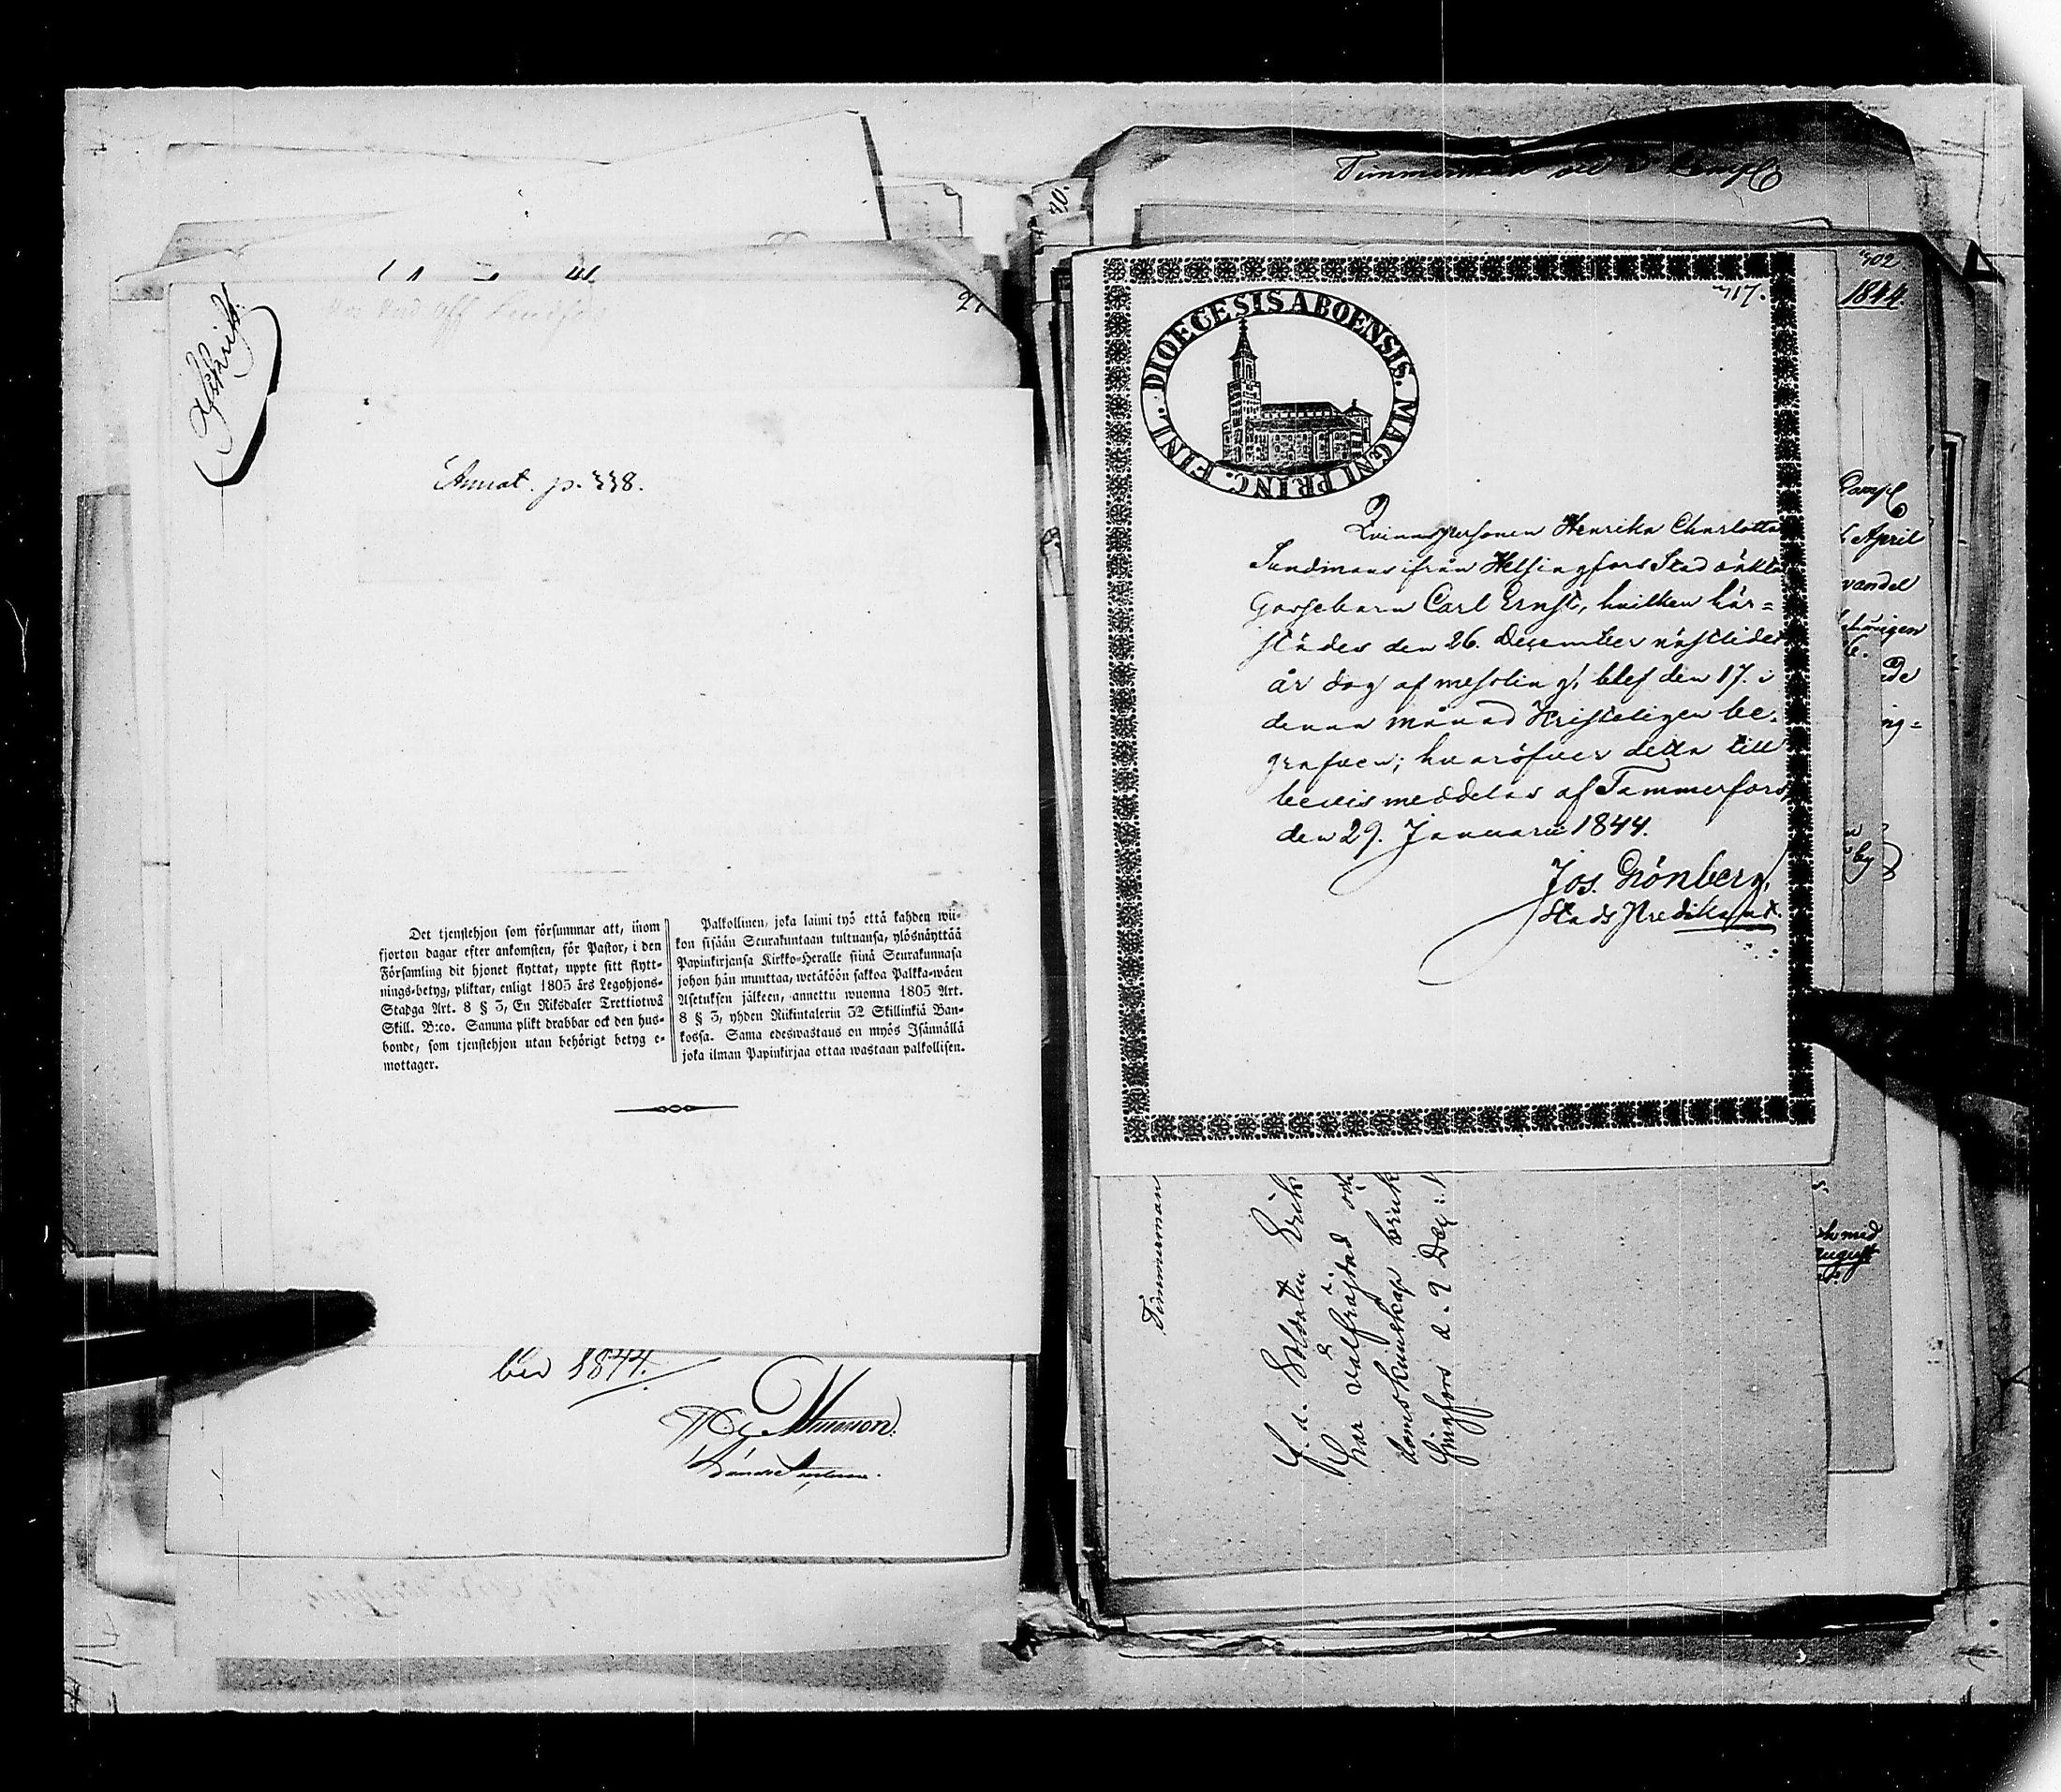 Afskrift.
27
Annot. p. 338.
Det tjenstehjon som försummar att, inom
fjorton dagar efter ankomsten, för Pastor, i den
Församling dit hjonet flyttat, uppte sitt flytt-
nings-betyg, pliktar, enligt 1805 års Legohjons-
Stadga Art. 8 § 3, En Riksdaler Trettiotwå
Skill. B:co. Samma plikt drabbar ock den hus-
bonde, som tjenstehjon utan behörigt betyg e-
mottager.
Palkollinen, joka laimi lyö että kahden wii-
kon sisään Seurakuntaan tultuansa, ylösnäyttää
Papinkirjansa Kirkko-Heralle siinä Seurakunnasa
johon hän muuttaa, wetäköön sakkoa Palkka-wäen
Asetuksen jälkeen, annettu wuonna 1805 Art.
8 § 3, yhden Riikintalerin 32 Skillinkiä Ban-
kossa. Sama edeswastaus on myös Isännällä
joka ilman Papinkirjaa ottaa wastaan palkollisen.
ber 1844.
40.
Timmerman
302
1844.
417.
DIOECESIS ABOENSIS. MAGNI PRINC. FINL.
Qvinnspersonen Henrika Charlotta
Sundmans ifrån Helsingfors Stad oäkta
Gossebarn Carl Ernst, hvilken här=
städes den 26. December nästlider
år dog af messling, blef den 17. i
denna månad Kristeligen be-
grafven; hvaröfver detta till
bevis meddelas af Tammerfors,
den 29. Januarii 1844.
Jos. Grönberg,
StadsPredikant.
April
vandel
ing=
by
med
August
Timmerman
F. d. Soldaten Erik
har välfrägdad och
domskunskap bruk
singfors d. 9 Dec: